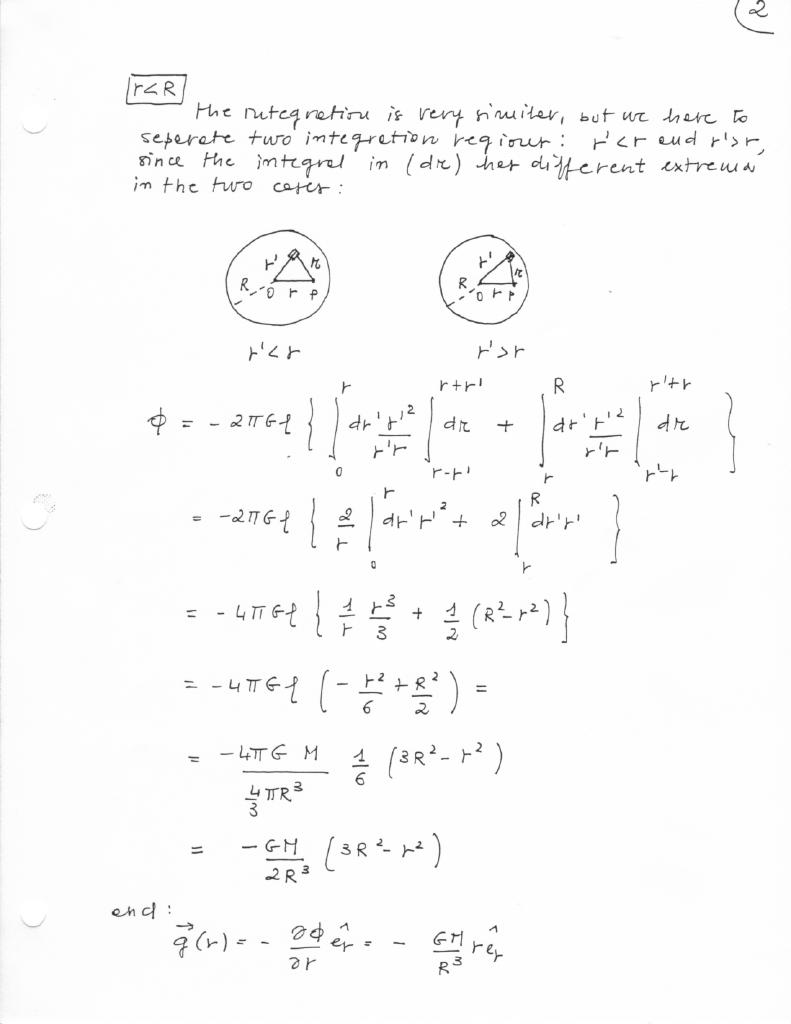 2
r<R
The integration is very similar, but we have to
separate two integration regions: r'<r and r'>r,
since the integral in (dr) has different extrema
in the two cases:
r' r R O r P
r' r R O r P
r'<r r'>r
ϕ = - 2πGρ { ∫_0^r dr' r'^2/(r'r) ∫_{r-r'}^{r+r'} dr + ∫_r^R dr' r'^2/(r'r) ∫_{r'-r}^{r'+r} dr }
= -2πGρ { 2/r ∫_0^r dr' r'^2 + 2 ∫_r^R dr' r' }
= - 4πGρ { 1/r r^3/3 + 1/2 (R^2 - r^2) }
= - 4πGρ ( - r^2/6 + R^2/2 ) =
= -4πG M / (4/3 πR^3) 1/6 (3R^2 - r^2)
= - GM/(2R^3) (3R^2 - r^2)
and:
g⃗(r) = - ∂ϕ/∂r ê_r = - GM/R^3 r ê_r